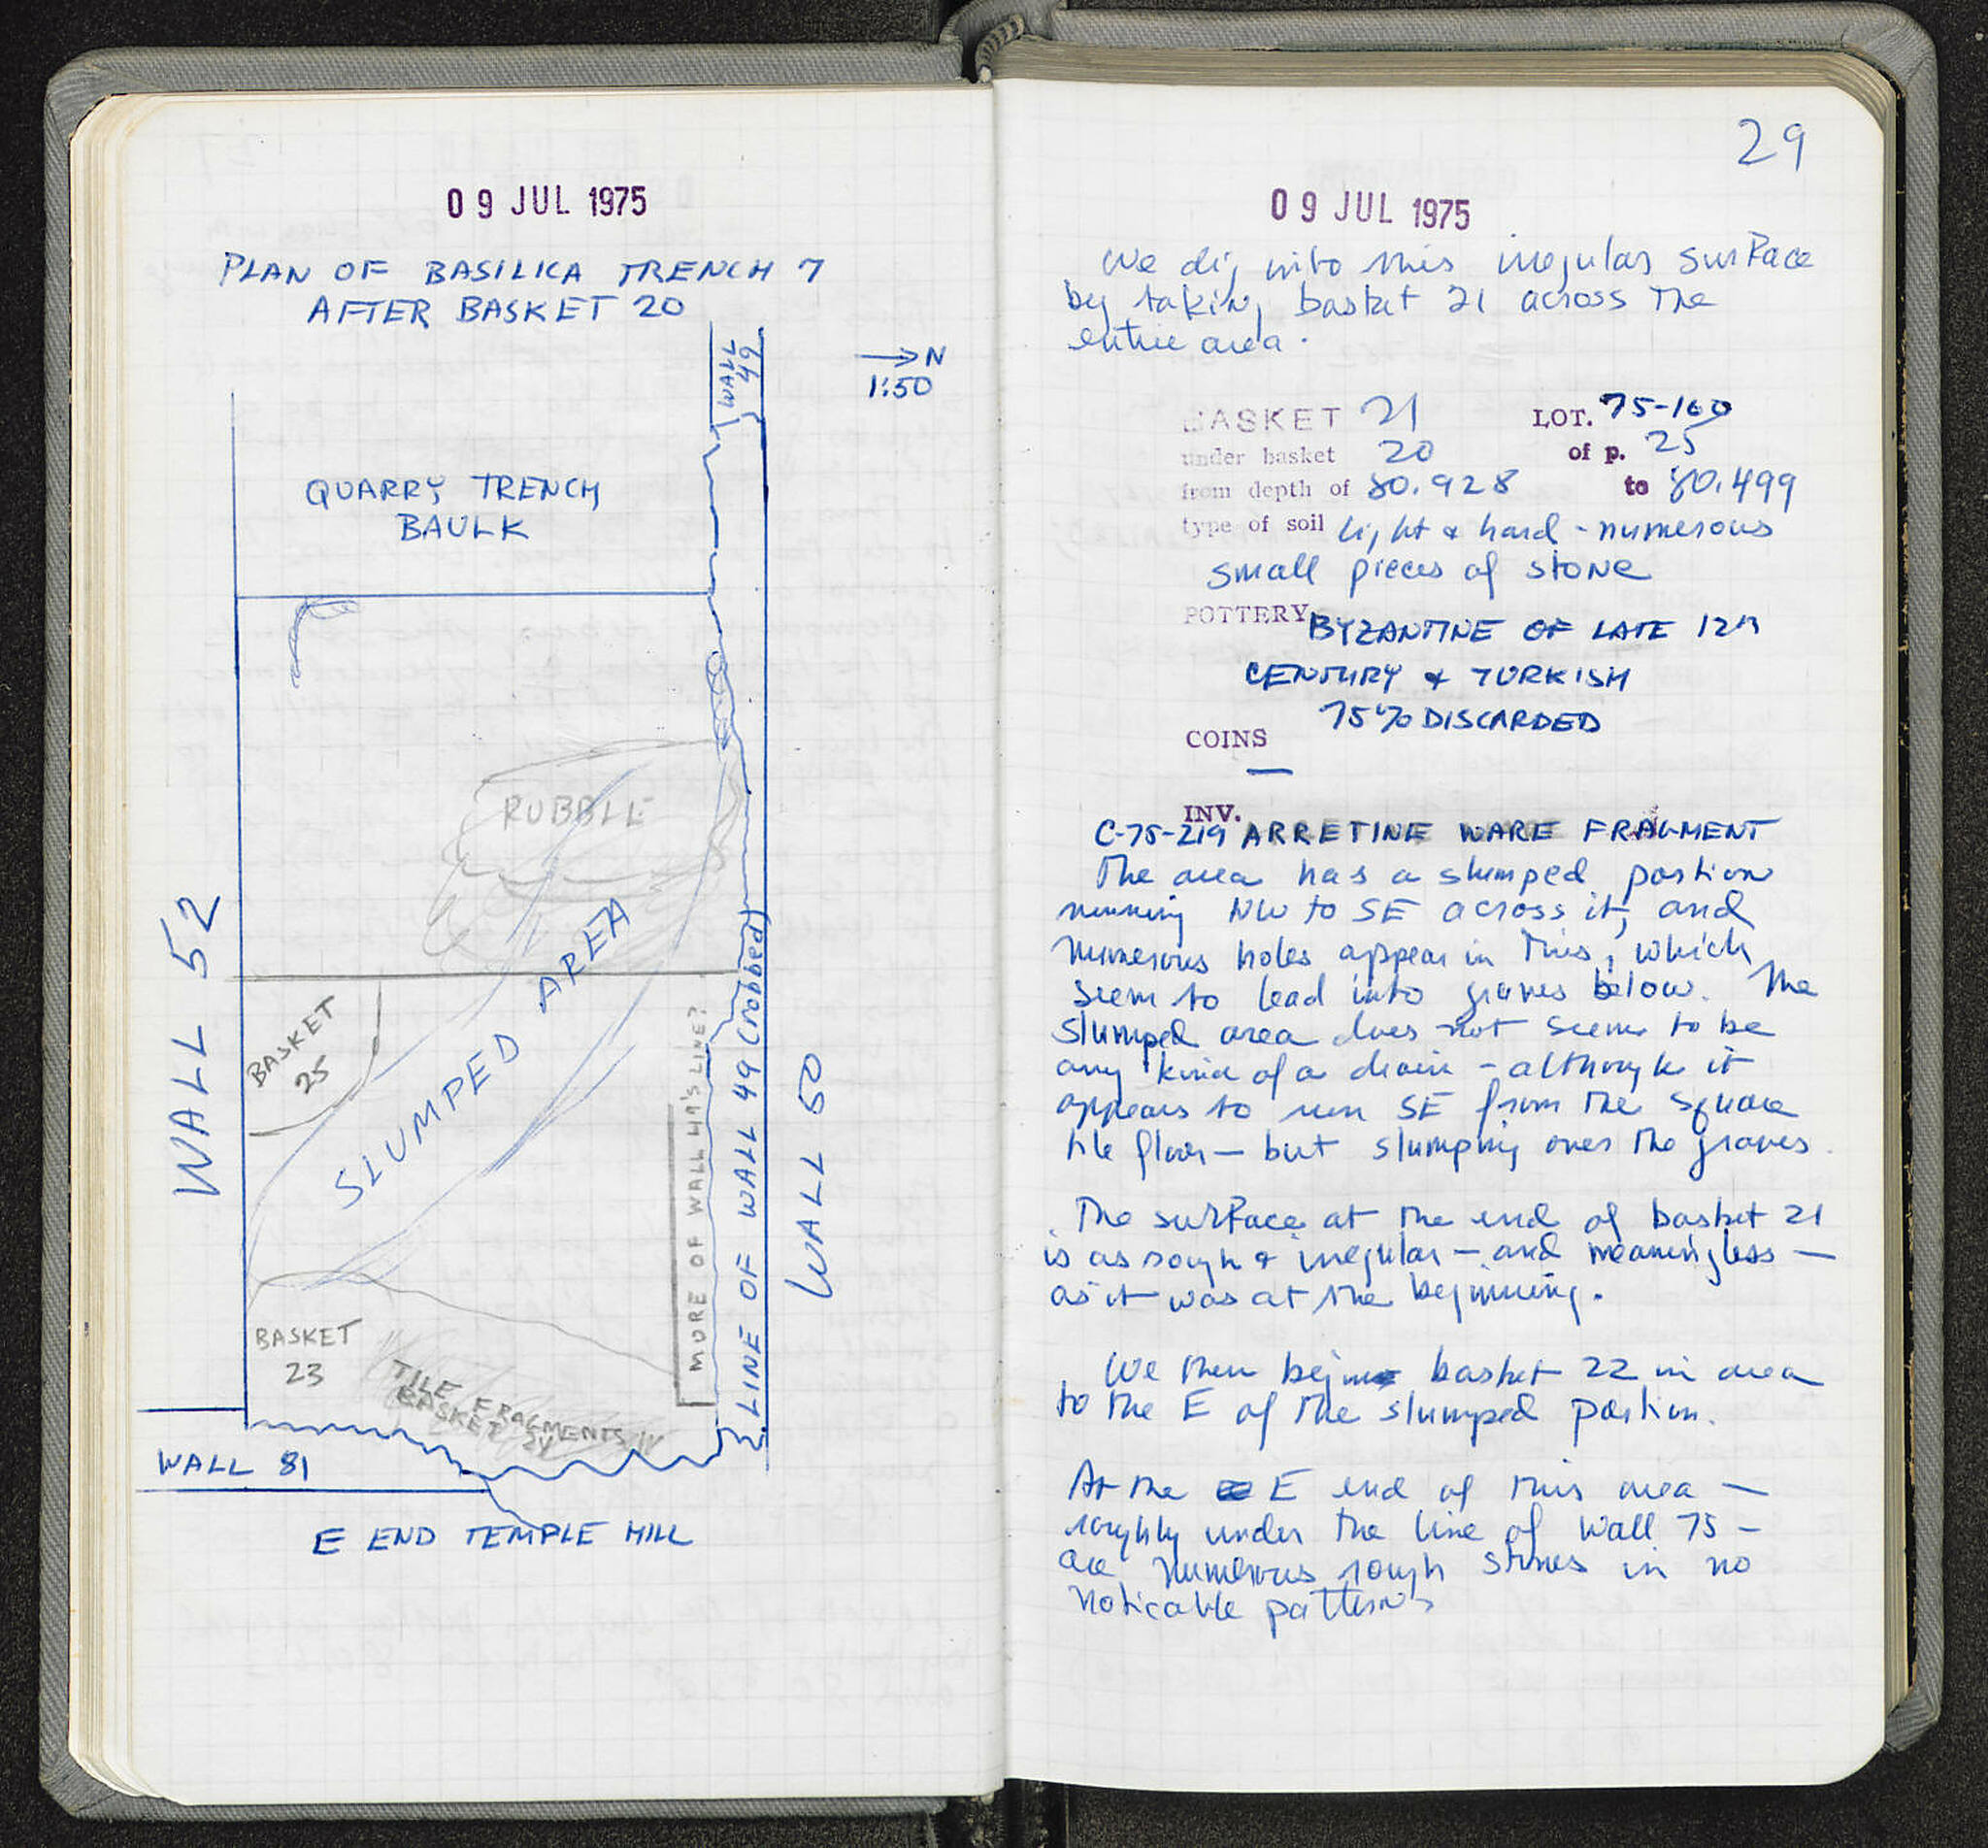 09 JUL 1975
PLAN OF BASILICA TRENCH 7
AFTER BASKET 20
WALL
49
→N
1:50
QUARRY TRENCH
BAULK
RUBBLE
WALL 52
SLUMPED AREA
BASKET
25
MORE OF WALL 49'S LINE?
LINE OF WALL 49 (robbed)
WALL 50
BASKET
23
TILE FRAGMENTS
BASKET 24
WALL 81
E END TEMPLE HILL
29
09 JUL 1975
We dig into this irregular surface
by taking basket 21 across the
entire area.
BASKET 21 LOT. 75-160
under basket 20 of p. 25
from depth of 80.928 to 80.499
type of soil light & hard - numerous
small pieces of stone
POTTERY BYZANTINE OF LATE 12th
CENTURY & TURKISH
75% DISCARDED
COINS
—
INV.
C-75-219 ARRETINE WARE FRAGMENT
The area has a slumped portion
running NW to SE across it, and
numerous holes appear in this, which
seem to lead into graves below. The
slumped area does not seem to be
any kind of a drain - although it
appears to run SE from the square
tile floor — but slumping over the graves.
The surface at the end of basket 21
is as rough & irregular — and meaningless —
as it was at the beginning.
We then begin basket 22 in area
to the E of the slumped portion.
At the E end of this area —
roughly under the line of Wall 75 —
are numerous rough stones in no
noticable patterns